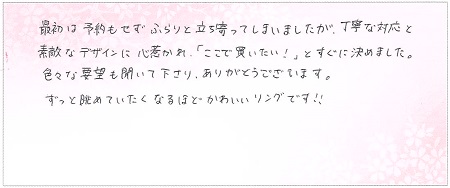 最初は予約もせずふらりと立ち寄ってしまいましたが、丁寧な対応と
素敵なデザインに心惹かれ、「ここで買いたい!」とすぐに決めました。
色々な要望も聞いて下さり、ありがとうございます。
ずっと眺めていたくなるほどかわいいリングです!!